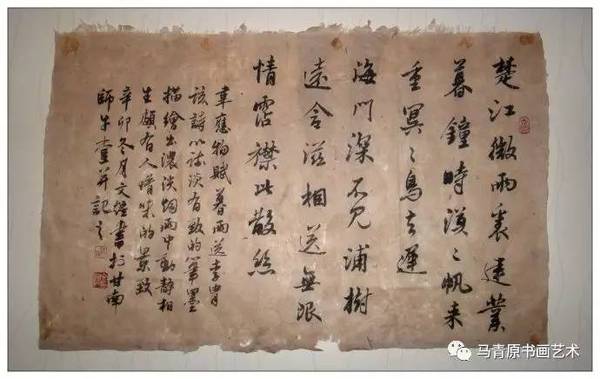 楚江微雨裏建業
暮鐘時漠〻帆来
重冥〻鳥去遲
海門深不見浦樹
遠含滋相送無限
情霑襟比散絲
韋應物賦暮雨送李胄
該詩以淡有致的筆墨
描繪出濃淡烟雨中動静相
生頗有人味的景致
辛卯冬月文書於甘南
師牛并記之
马青原书画艺术